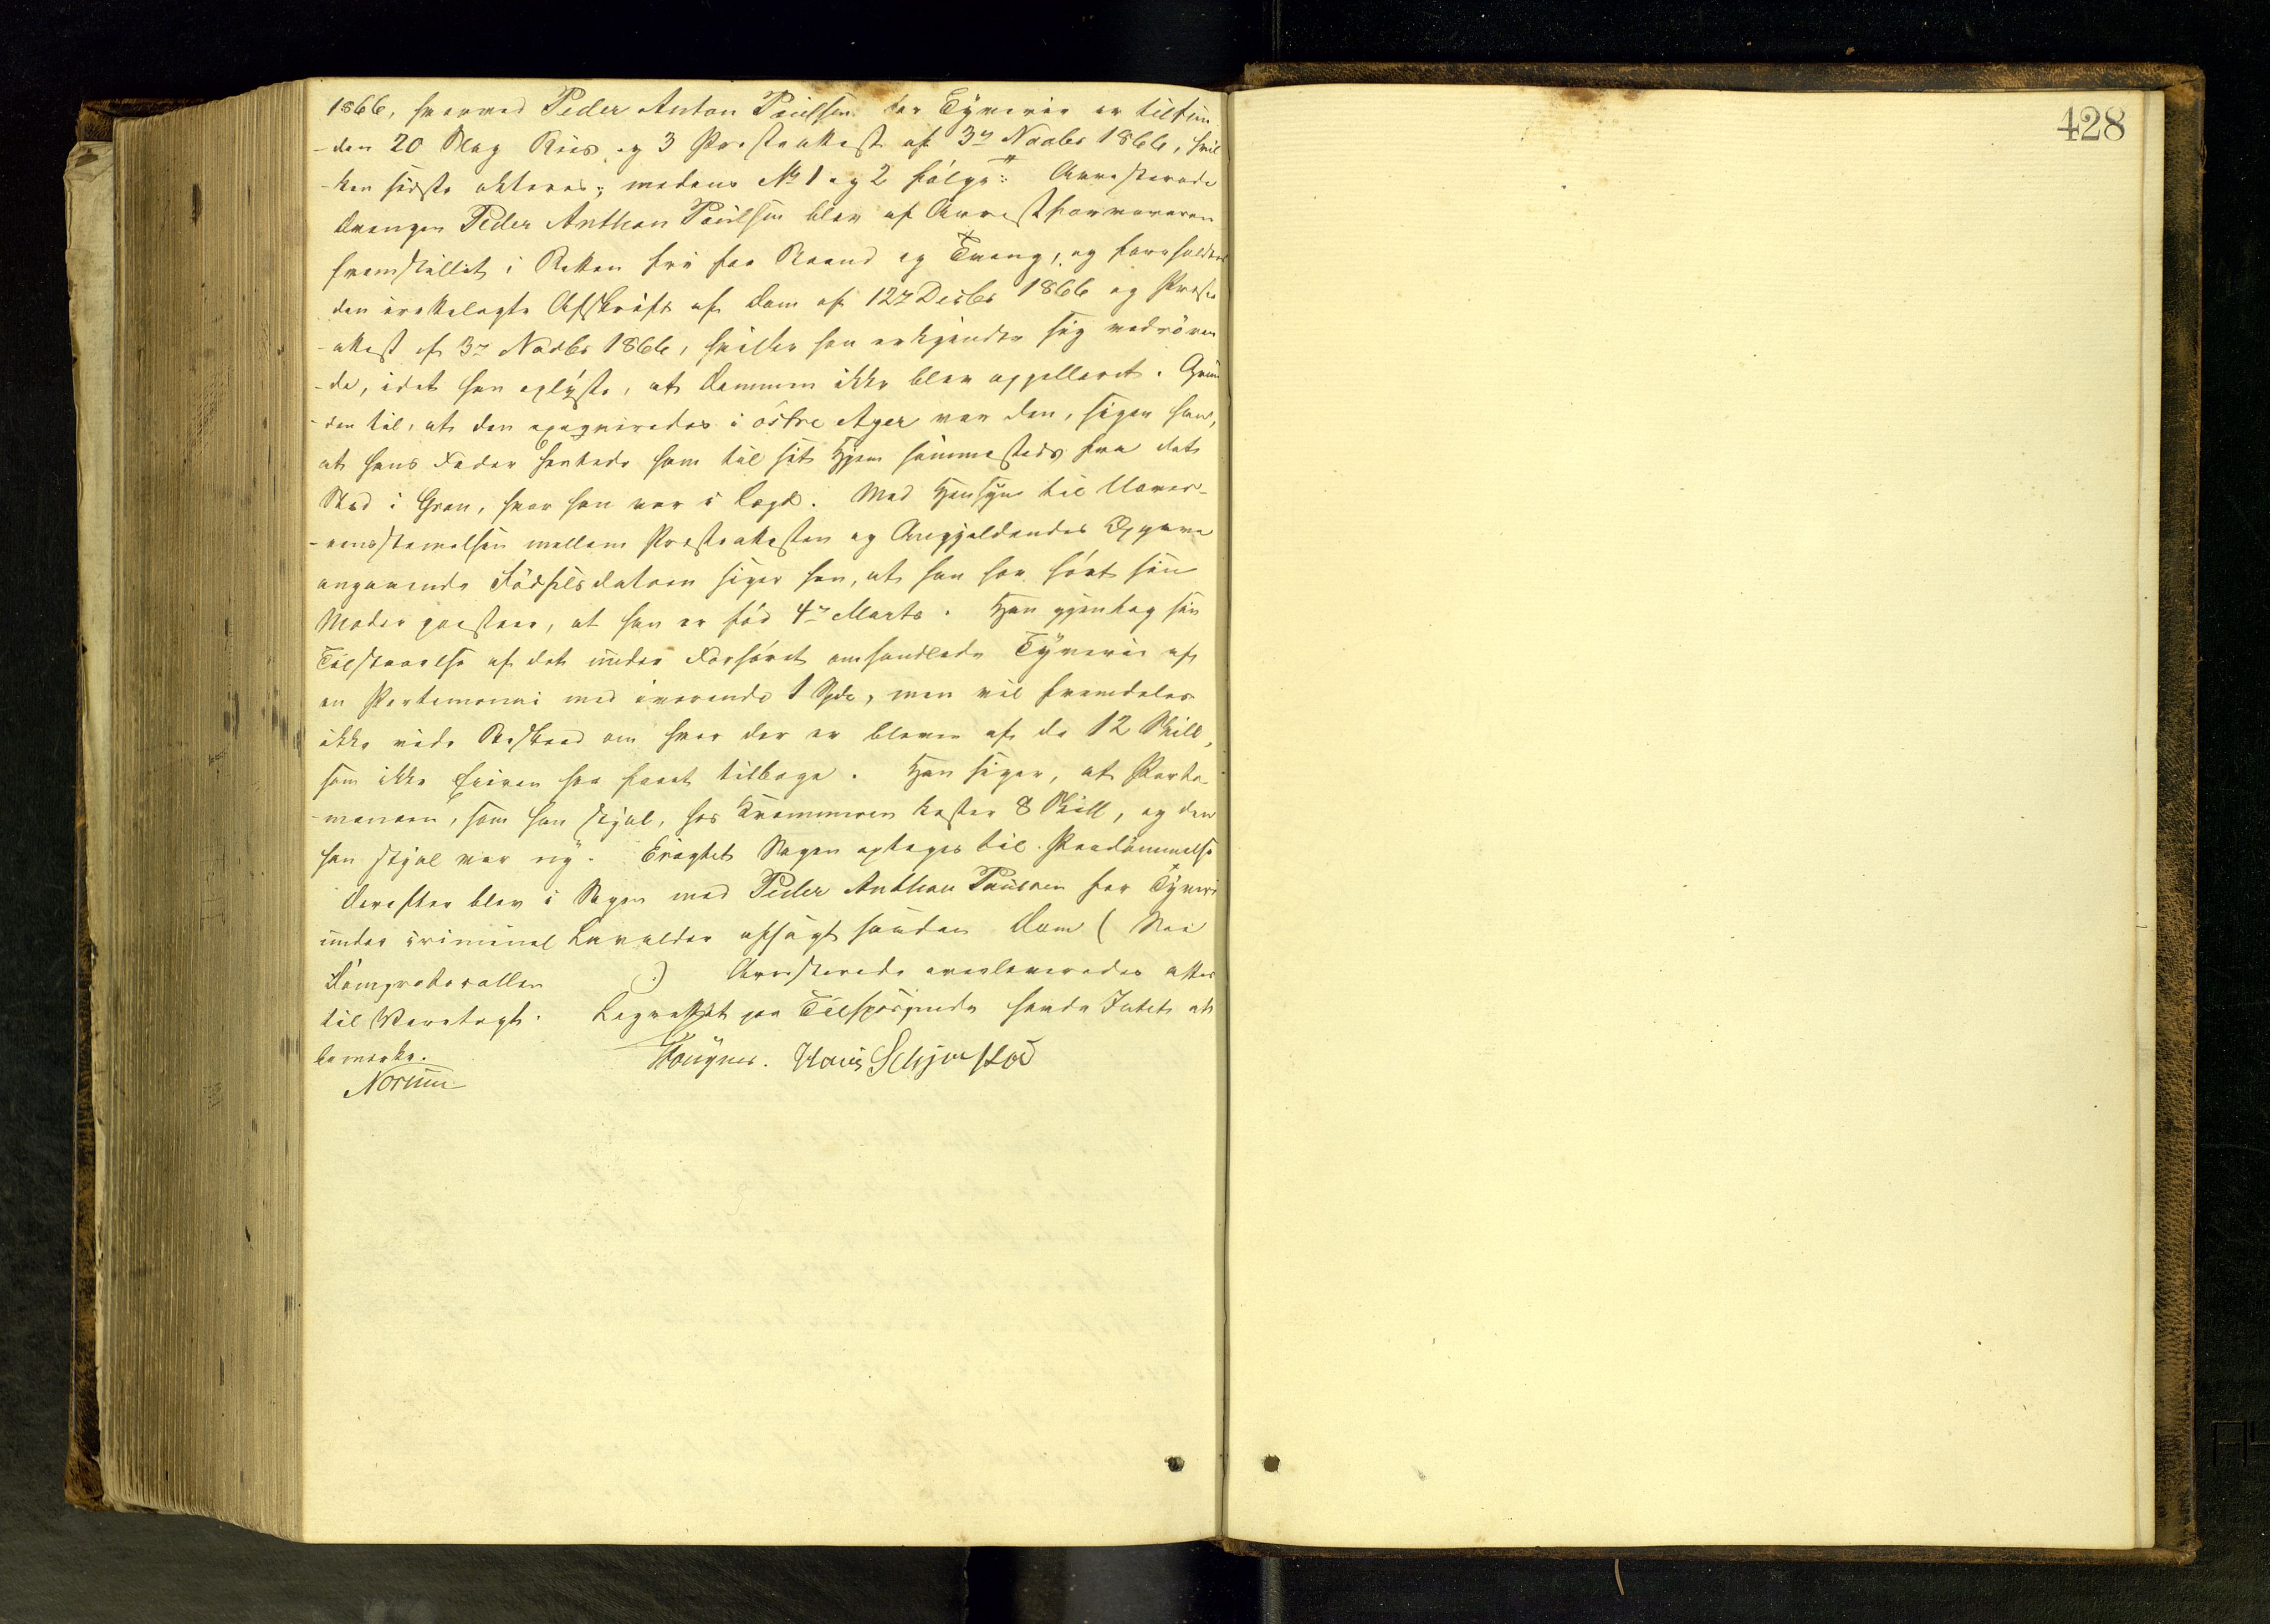 1866, hvorved Peder Anton Paulsen for Tyverie er tilfun
-den 20 Slag Riis, og 3 Presteattest af 3die Novbr 1866, hvil
-ken sidste akteres; medens No 1 og 2 følge: Arresterede
Drengen Peder Anthon Paulsen blev af Arrestforvareren
fremstillet i Retten fri for Baand og Tvang, og foreholdtes
den irettelagte Afskrift af Dom af 12te Decbr 1866 og Preste
-attest af 3die Novbr 1866, hvilke han erkjendte sig vedrören
-de, idet han oplyste, at Dommen ikke blev appelleret. Grun
-den til, at den exeqveredes i östre Ager var den, siger han,
at hans Fader hentede ham til sit Hjem sammesteds fra det
Sted i Gran, hvor han var i Lægd. Med Hensyn til Uover-
-eensstemelsen mellem Presteattesten og Angjeldendes Opgave
angaaende Födselsdatoen siger han, at han har hört sin
Moder paastaae, at han er föd 4de Marts. Han gjentog sin
Tilstaaelse af det under Forhöret omhandlede Tyverie af
en Portemonai med iverende 1 Spd, men vil fremdeles
ikke vide Besked om hvor der er bleven af de 12 Skill,
som ikke Eieren har faaet tilbage. Han siger, at Porte
-monaien, som han stjal, hos Kremmeren koster 8 Skill, og den
han stjal var ny. Eragtet Sagen optages til Paadömmelse
Derefter blev i Sagen mod Peder Anthon Paulsen for Tyveri
under criminel Lavalder afsagt saadan Dom ( See
Domprotocollen .) Arresterede overleveredes atter
til Varetægt. Lagrettet paa Tilspörgende havde Intet at
bemerke.
Norum Hougner. Hans Schjerstad
428